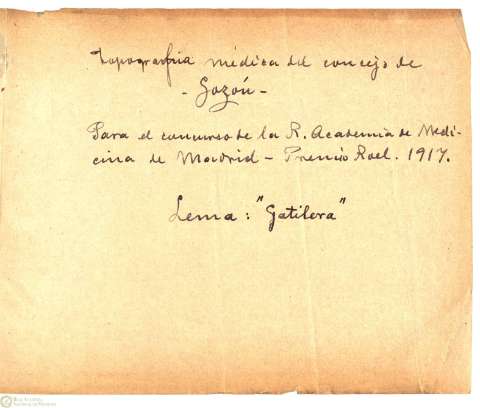 Topografia médica del concejo de
- Gozón -
Para el concurso de la R. Academia de Medi-
cina de Madrid - Premio Roel. 1917.
Lema: "Gatilera"